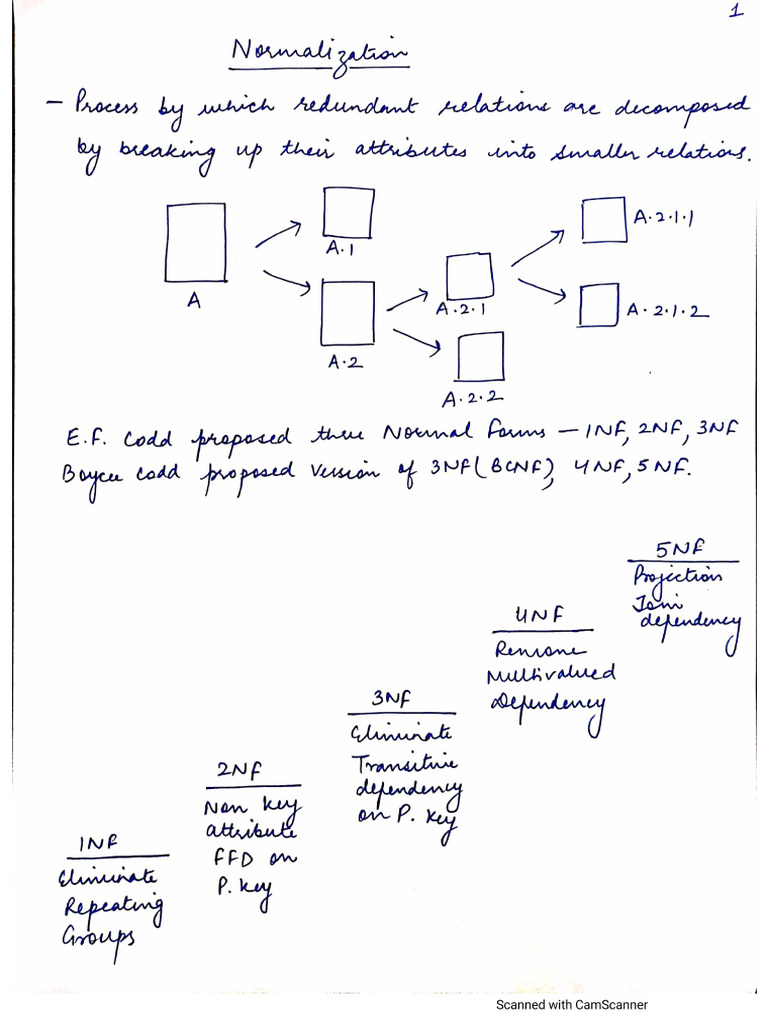 1
Normalization
- Process by which redundant relations are decomposed
by breaking up their attributes into smaller relations.
A
A.1
A.2
A.2.1
A.2.2
A.2.1.1
A.2.1.2
E.F. Codd proposed three Normal Forms - 1NF, 2NF, 3NF
Boyce Codd proposed version of 3NF (BCNF), 4NF, 5NF.
1NF
Eliminate
Repeating
Groups
2NF
Non key
attribute
FFD on
P. key
3NF
Eliminate
Transitive
dependency
on P. key
4NF
Remove
Multivalued
Dependency
5NF
Projection
Join
dependency
Scanned with CamScanner